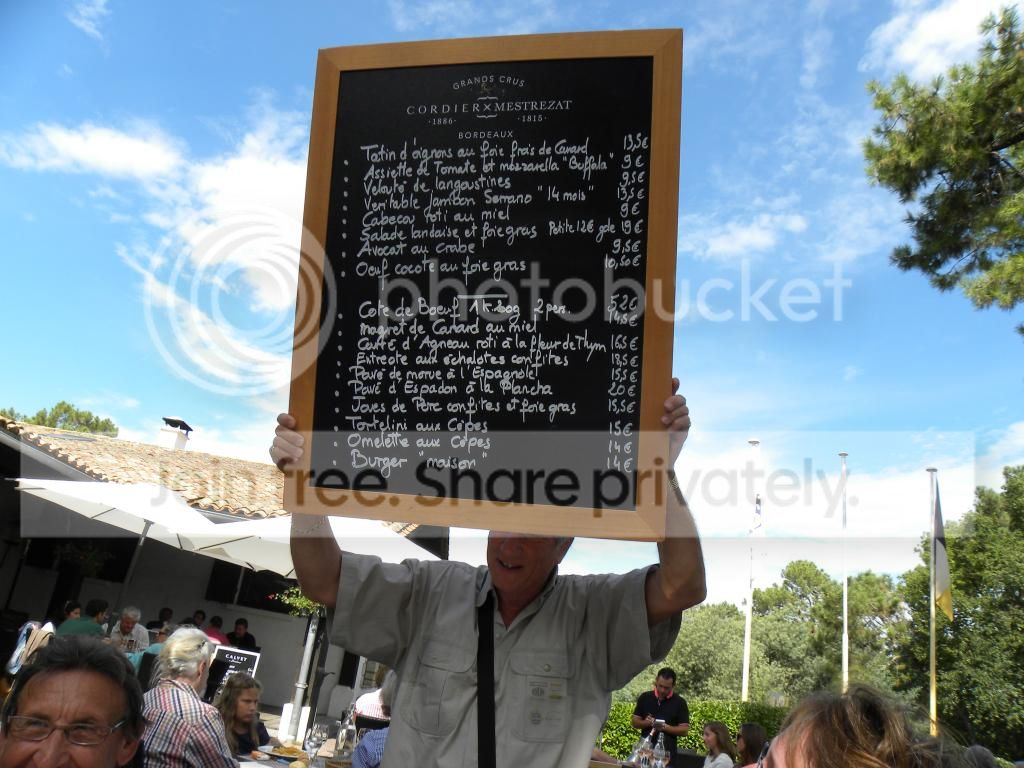 GRANDS CRUS
CORDIER MESTREZAT
· 1886 · · 1815 ·
BORDEAUX
· Tatin d'oignons au foie frais de Canard 13,5€
· Assiette de Tomate et mozzarella "Buffala" 9€
· Velouté de langoustines 9,5€
· Veritable Jambon Serrano "14 mois" 13,5€
· Cabecou roti au miel 9€
· Salade landaise et foie gras Petite 12€ gde 19€
· Avocat au crabe 9,5€
· Oeuf cocote au foie gras 10,50€
· Cote de Boeuf 1k200g 2 pers. 52€
· magret de Canard au miel 14,5€
· Carré d'Agneau roti à la fleur de Thym 16,5€
· Entrecote aux échalotes confites 18,5€
· Pavé de morue à l'Espagnolet 15,5€
· Pavé d'Espadon à la Plancha 20€
· Joues de Porc confites et foie gras 15,5€
· Tortelini aux Cèpes 15€
· Omelette aux Cèpes 14€
· Burger "maison" 14€
photobucket
Join free. Share privately.
CALVET